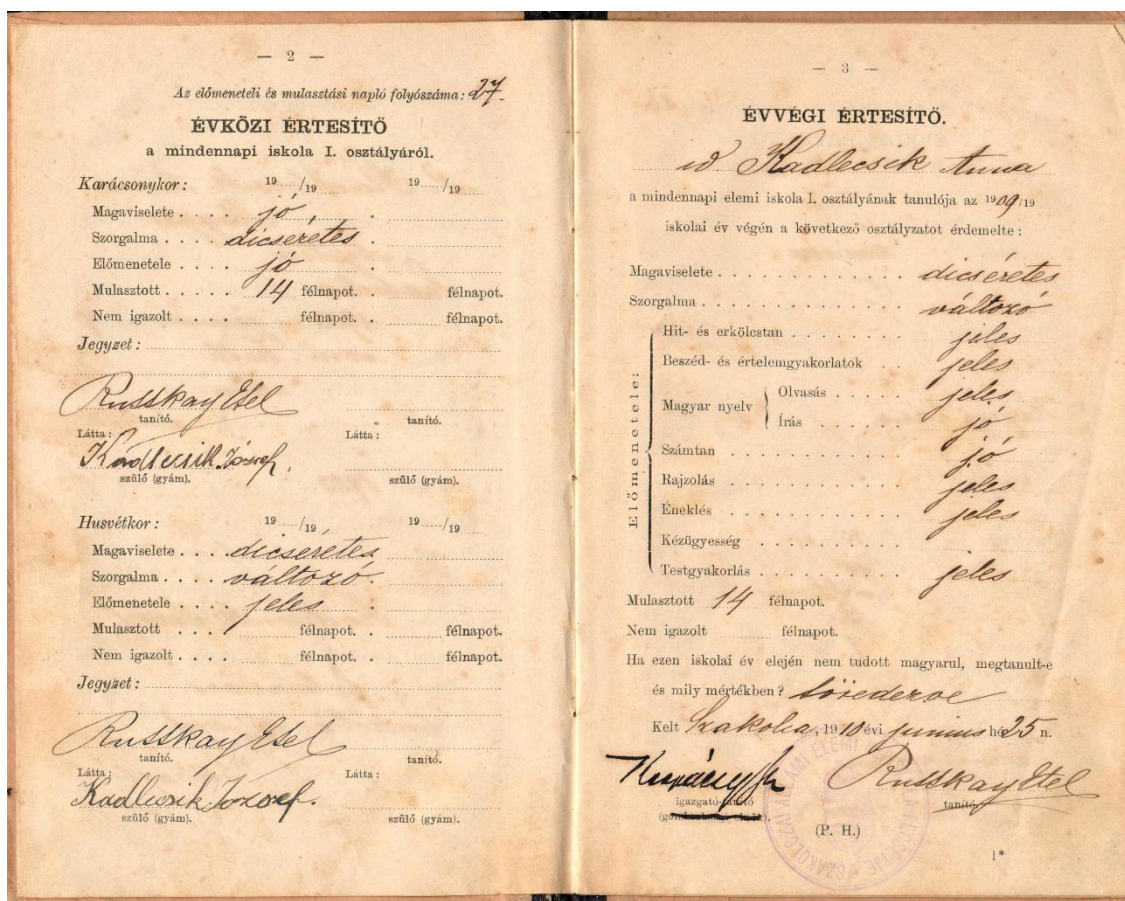 — 2 —
Az előmeneteli és mulasztási napló folyószáma: 27.
ÉVKÖZI ÉRTESÍTŐ
a mindennapi iskola I. osztályáról.
Karácsonykor: 19...../19 19...../19
Magaviselete . . . . jó
Szorgalma . . . . dicséretes
Előmenetele . . . . jó
Mulasztott . . . . 14 félnapot. . félnapot.
Nem igazolt . . . . félnapot. . félnapot.
Jegyzet:
Russkay Etel
tanító. tanító.
Látta: Látta:
Kadlecsik József.
szülő (gyám). szülő (gyám).
Husvétkor: 19...../19 19...../19
Magaviselete . . . . dicséretes
Szorgalma . . . . változó
Előmenetele . . . . jeles
Mulasztott . . . félnapot. . félnapot.
Nem igazolt . . . . félnapot. . félnapot.
Jegyzet:
Russkay Etel
tanító. tanító.
Látta: Látta:
Kadlecsik József.
szülő (gyám). szülő (gyám).
— 3 —
ÉVVÉGI ÉRTESÍTŐ.
Kadlecsik Anna
a mindennapi elemi iskola I. osztályának tanulója az 1909/19
iskolai év végén a következő osztályzatot érdemelte:
Magaviselete . . . . . . . . . . . dicséretes
Szorgalma . . . . . . . . . . . . változó
Előmenetele:
Hit- és erkölcstan . . . . . . . . jeles
Beszéd- és értelemgyakorlatok jeles
Magyar nyelv { Olvasás . . . . . jeles
Írás . . . . . . jó
Számtan . . . . . . . . . . . . jó
Rajzolás . . . . . . . . . . . . jeles
Éneklés . . . . . . . . . . . . jeles
Kézügyesség . . . . . . . . . .
Testgyakorlás . . . . . . . . . . jeles
Mulasztott 14 félnapot.
Nem igazolt félnapot.
Ha ezen iskolai év elején nem tudott magyarul, megtanult-e
és mily mértékben?
Kelt Szakolca, 1910 évi junius hó 25 n.
Russkay Etel
igazgató-tanító tanító.
(gondnoksági elnök).
(P. H.)
1*